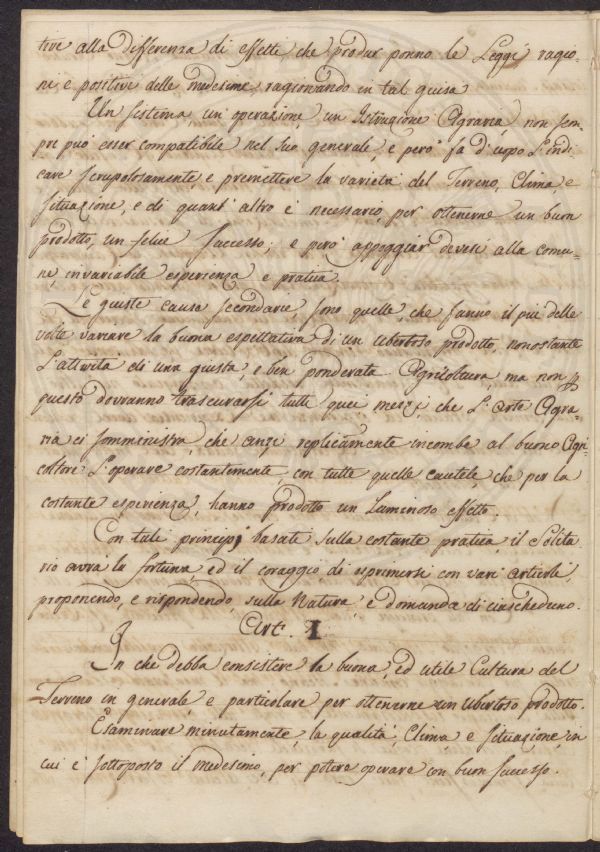 tive alla differenza di effetti, che produr ponno le Leggi ragio-
ni, e positive delle medesime ragionando in tal guisa
Un sistema, un' operazione, un Istruzione Agraria, non sem-
pre può esser compatibile nel suo generale, e però fa d'uopo l'indi
care scrupolosamente, e premettere la varietà del Terreno, Clima e
situazione, e di quant' altro è necessario per ottenerne un buon
prodotto, un felice successo; e però appoggiar devesi alla comu-
ne, invariabile esperienza e pratica.
Le queste cause secondarie, sono quelle, che fanno il più delle
volte variare la buona espettativa di un ubertoso prodotto, nonostante
L'attività di una giusta, e ben ponderata Agricoltura, ma non p
questo dovranno trascurarsi tutti quei mezzi, che L'arte Agra-
ria ci somministra, che anzi replicamente incombe al buono Agri
coltore L'operare costantemente, con tutte quelle cautele che per la
costante esperienza, hanno prodotto un Luminoso effetto.
Con tali principj basati sulla costante pratica, il Solita
rio avrà la fortuna, ed il coraggio di esprimersi con varj articoli,
proponendo, e rispondendo, sulla Natura, e domanda di ciascheduno.
Art. 1
In che debba consistere la buona, ed utile Cultura del
Terreno in generale e particolare per ottenerne un ubertoso prodotto.
Esaminare minutamente, la qualità, Clima, e situazione, in
cui è sottoposto il medesimo, per potere operare con buon successo.